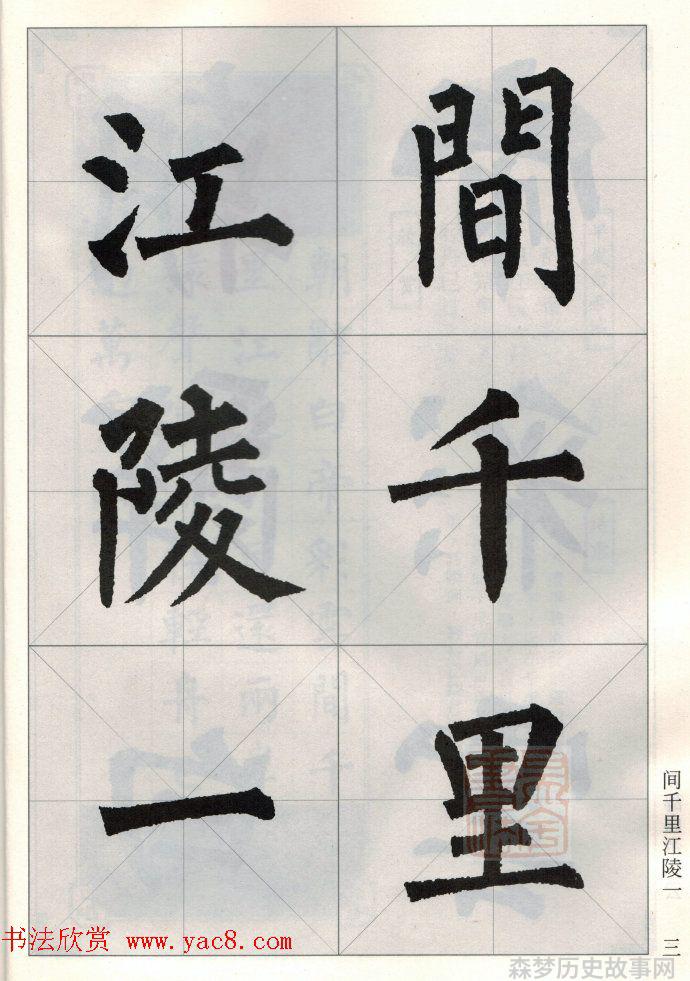 間千里
江陵一
间千里江陵一
三
书法欣赏 www.yac8.com
森梦历史故事网